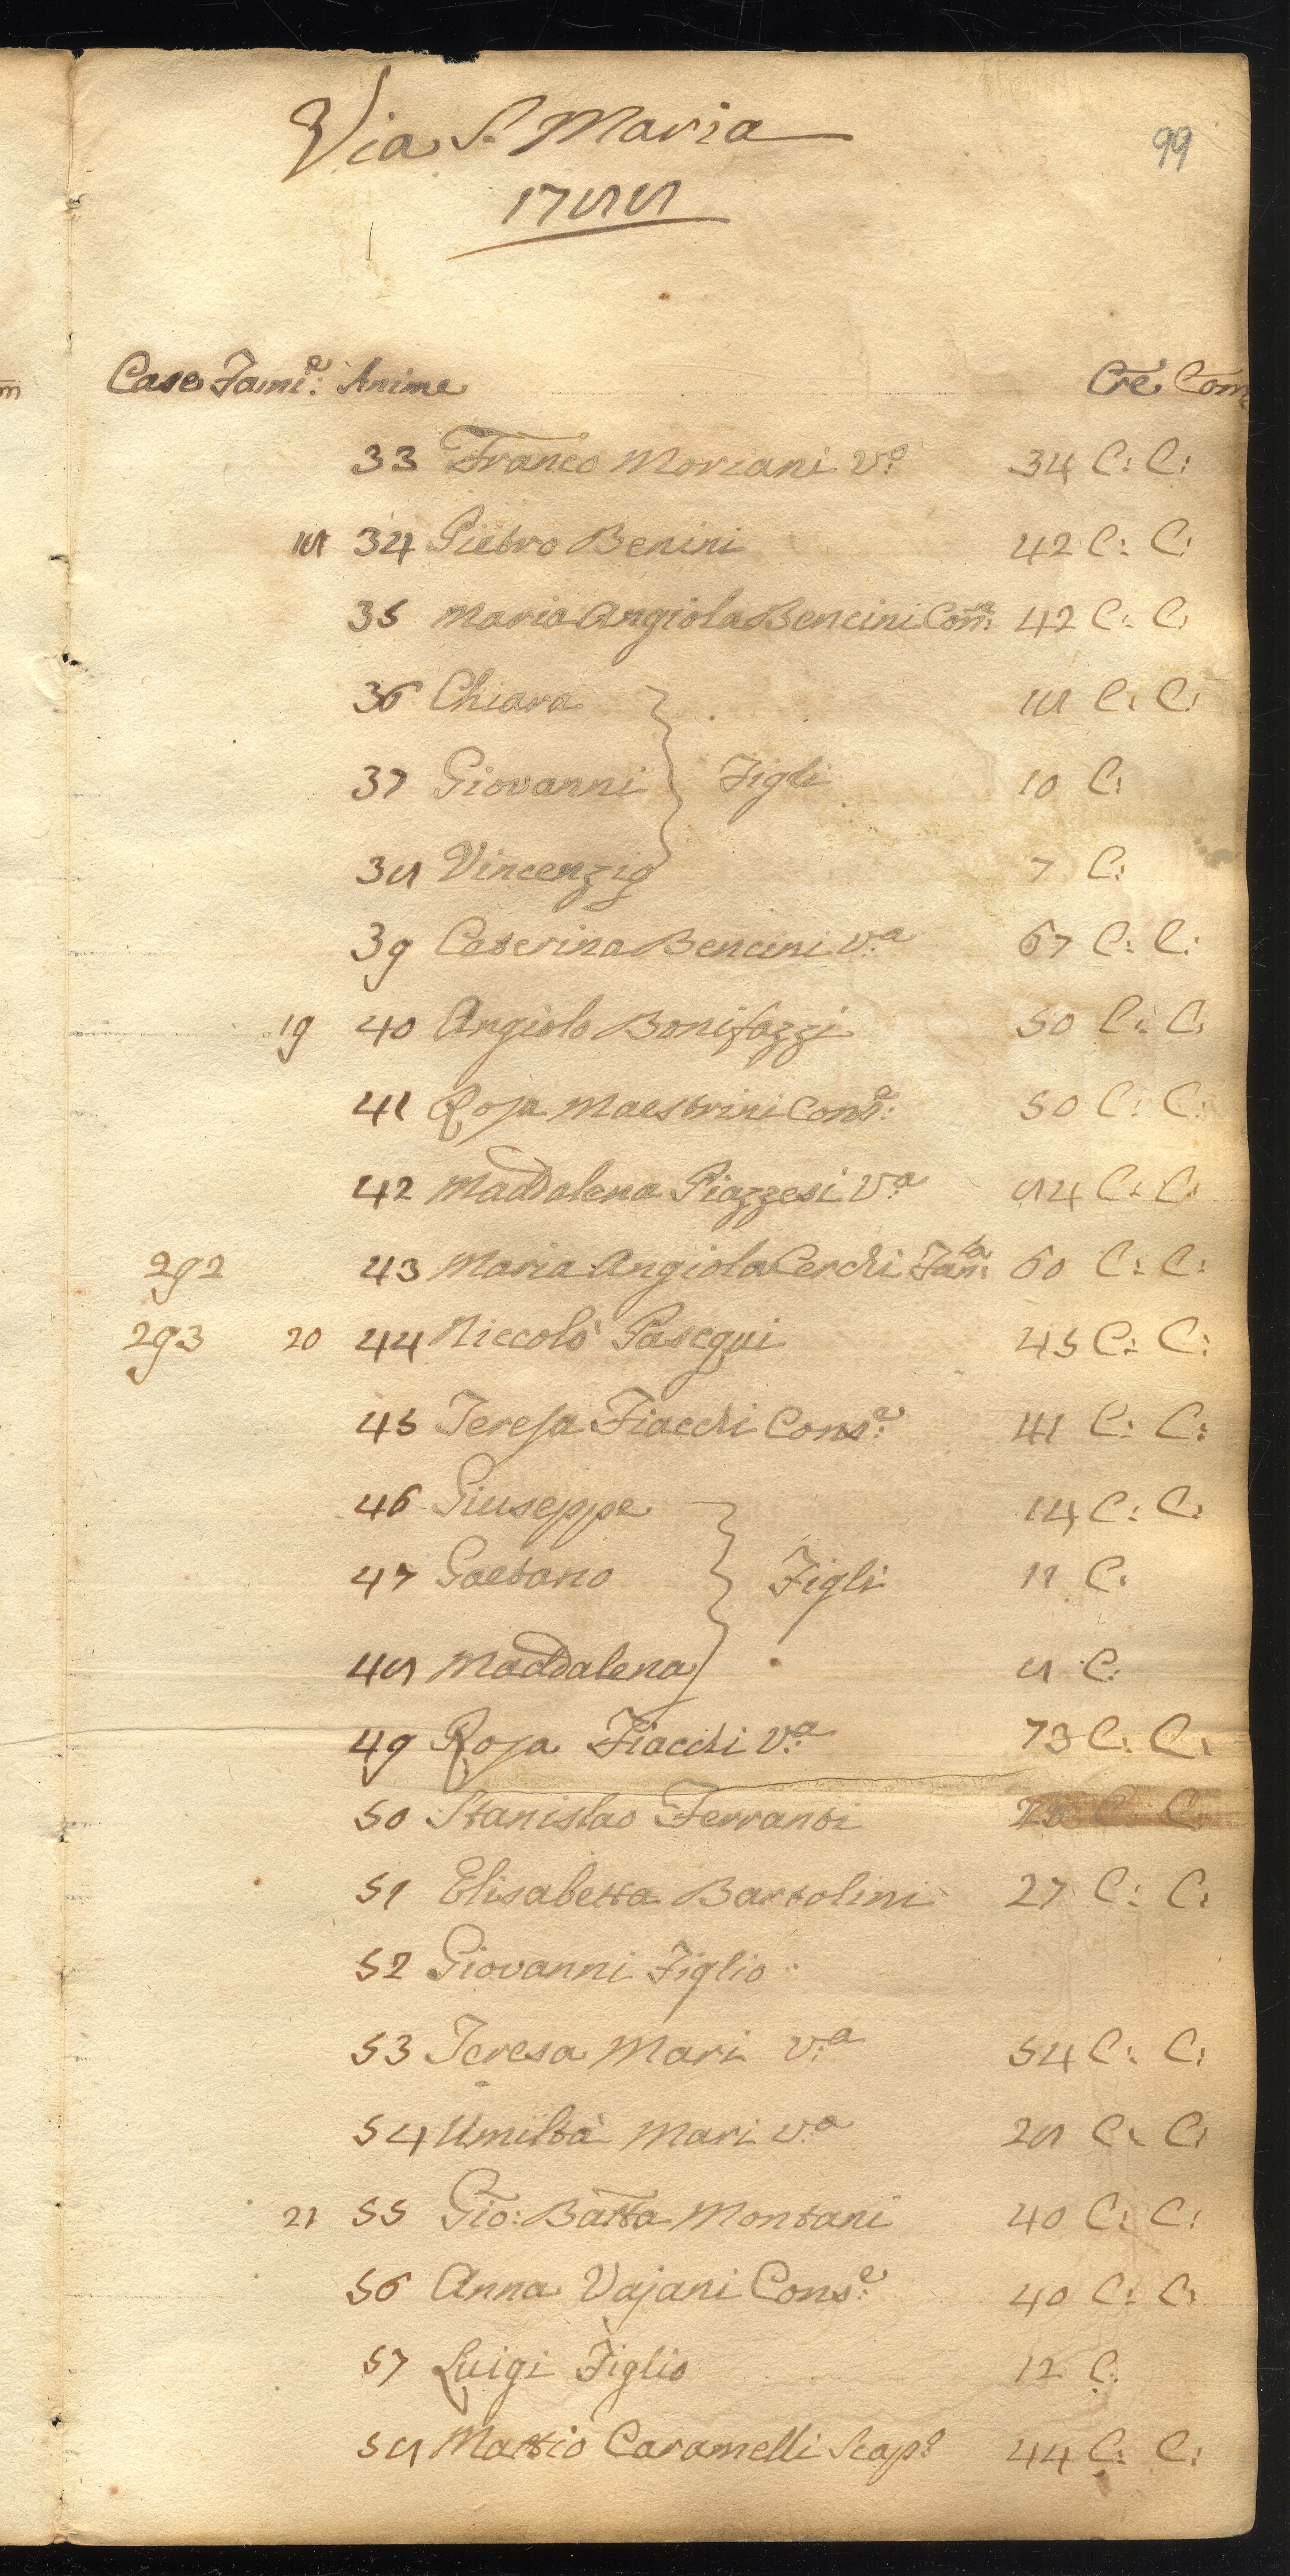 Via S. Maria
99
1788
Case Fami:e Anime Cre. Com
33 Franco Moriani V:o 34 C: C:
18 34 Pietro Benini 42 C: C:
35 Maria Angiola Bencini Con:e 42 C: C:
36 Chiara 18 C: C:
37 Giovanni } Figli 10 C:
38 Vincenzio 7 C:
39 Caterina Bencini V:a 67 C: C:
19 40 Angiolo Bonifazzi 50 C: C:
41 Rosa Maestrini Cons:e 50 C: C:
42 Maddalena Piazzesi V:a 84 C: C:
292 43 Maria Angiola Cerchi Fam:la 60 C: C:
293 20 44 Niccolò Pasequi 45 C: C:
45 Teresa Fiacchi Cons:e 41 C: C:
46 Giuseppe 14 C: C:
47 Gaetano } Figli 11 C:
48 Maddalena 8 C:
49 Rosa Fiacchi V:a 73 C: C:
50 Stanislao Ferranti C: C:
51 Elisabetta Bartolini 27 C: C:
52 Giovanni Figlio
53 Teresa Mari V:a 54 C: C:
54 Umiltà Mari V:a 28 C: C:
21 55 Gio: Batta Montani 40 C: C:
56 Anna Vajani Cons:e 40 C: C:
57 Luigi Figlio 12 C:
58 Mattio Caramelli Scap:o 44 C: C: